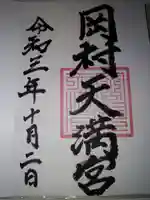 岡村天満宮
令和三年十月二日